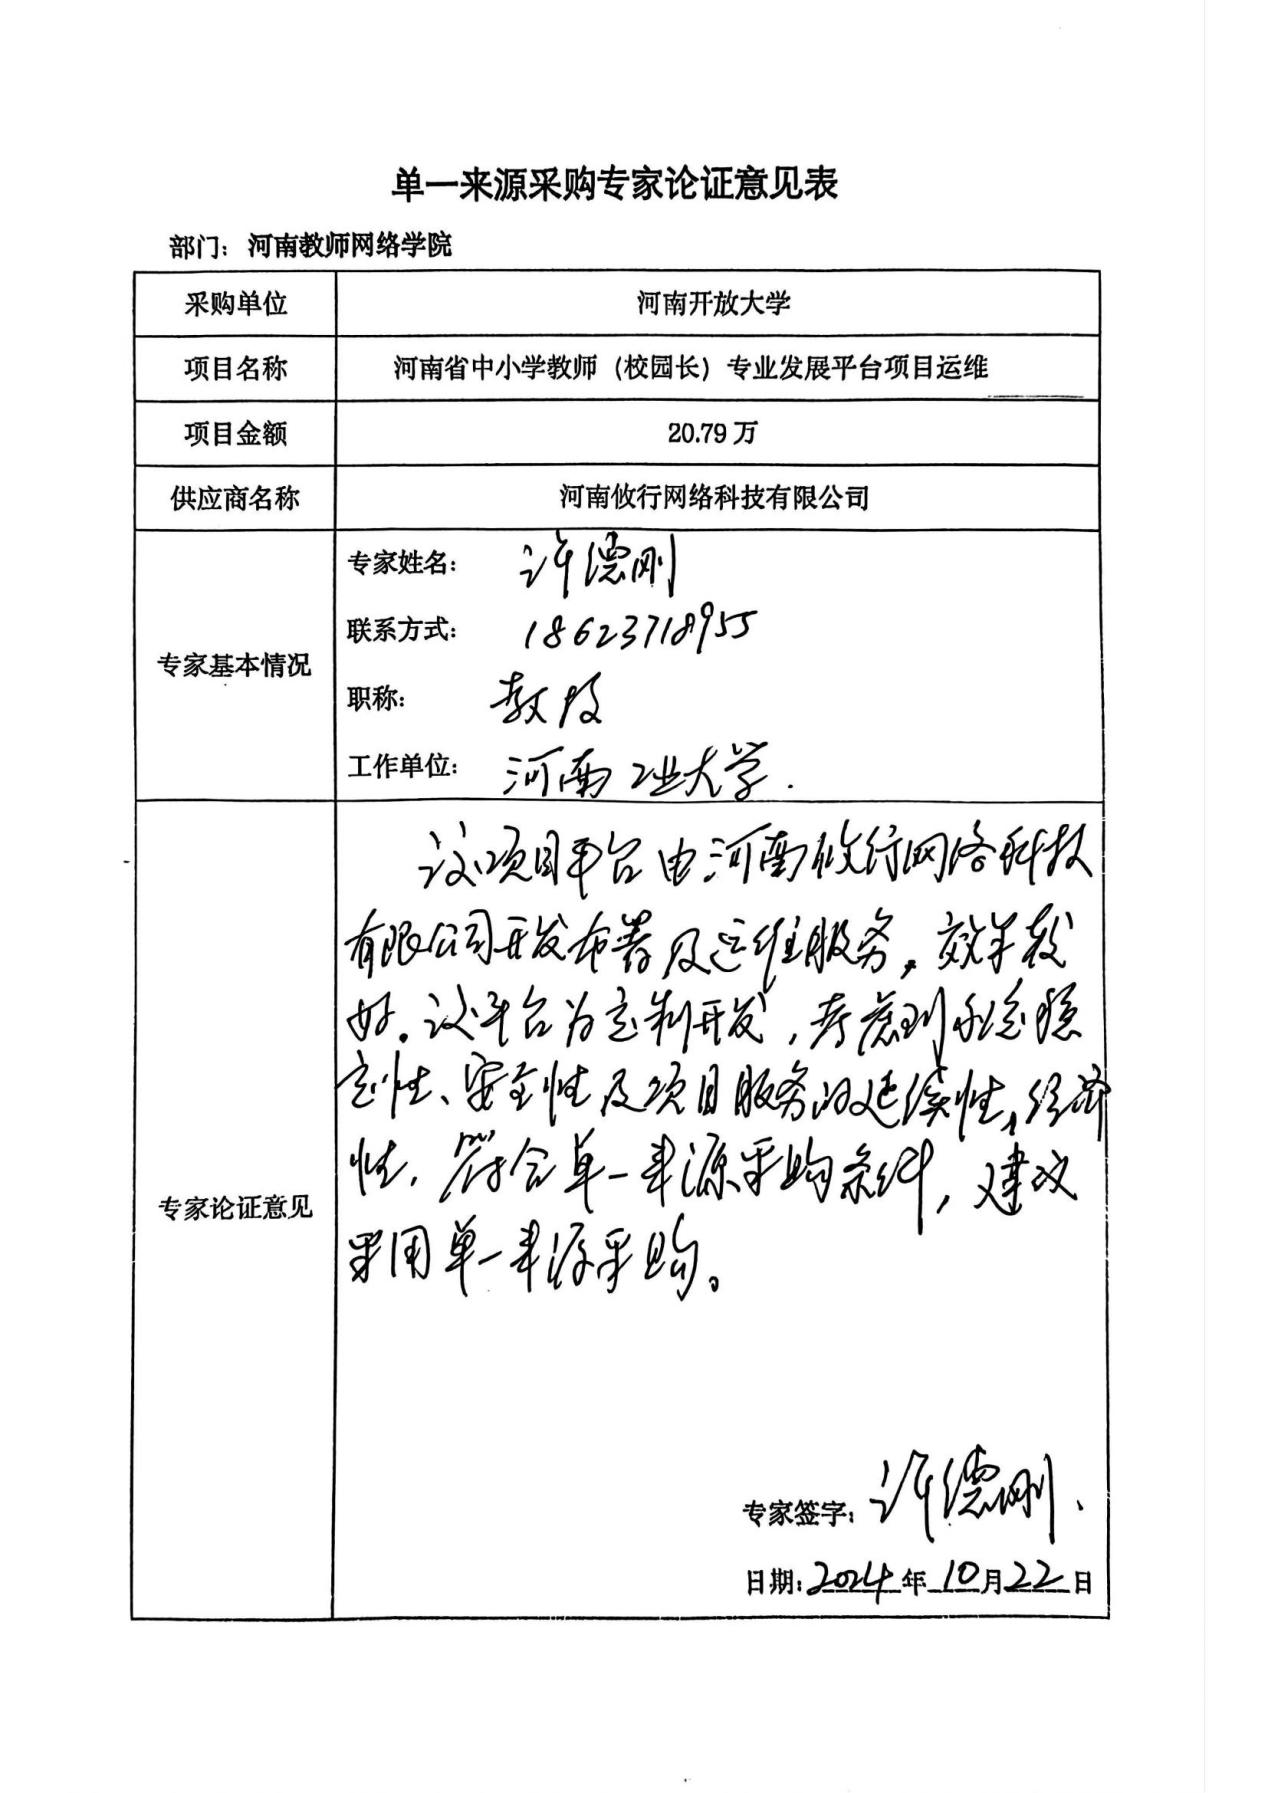 单一来源采购专家论证意见表
部门：河南教师网络学院
采购单位 河南开放大学
项目名称 河南省中小学教师（校园长）专业发展平台项目运维
项目金额 20.79 万
供应商名称 河南攸行网络科技有限公司
专家基本情况
专家姓名： 许德刚
联系方式： 18623718955
职称： 教授
工作单位： 河南工业大学.
专家论证意见
该项目平台由河南攸行网络科技
有限公司开发布署及运维服务，效果较
好。该平台为定制开发，考虑到系统稳
定性、安全性及项目服务的延续性、经济
性，符合单一来源采购条件，建议
采用单一来源采购。
专家签字：许德刚、
日期：2024年10月22日